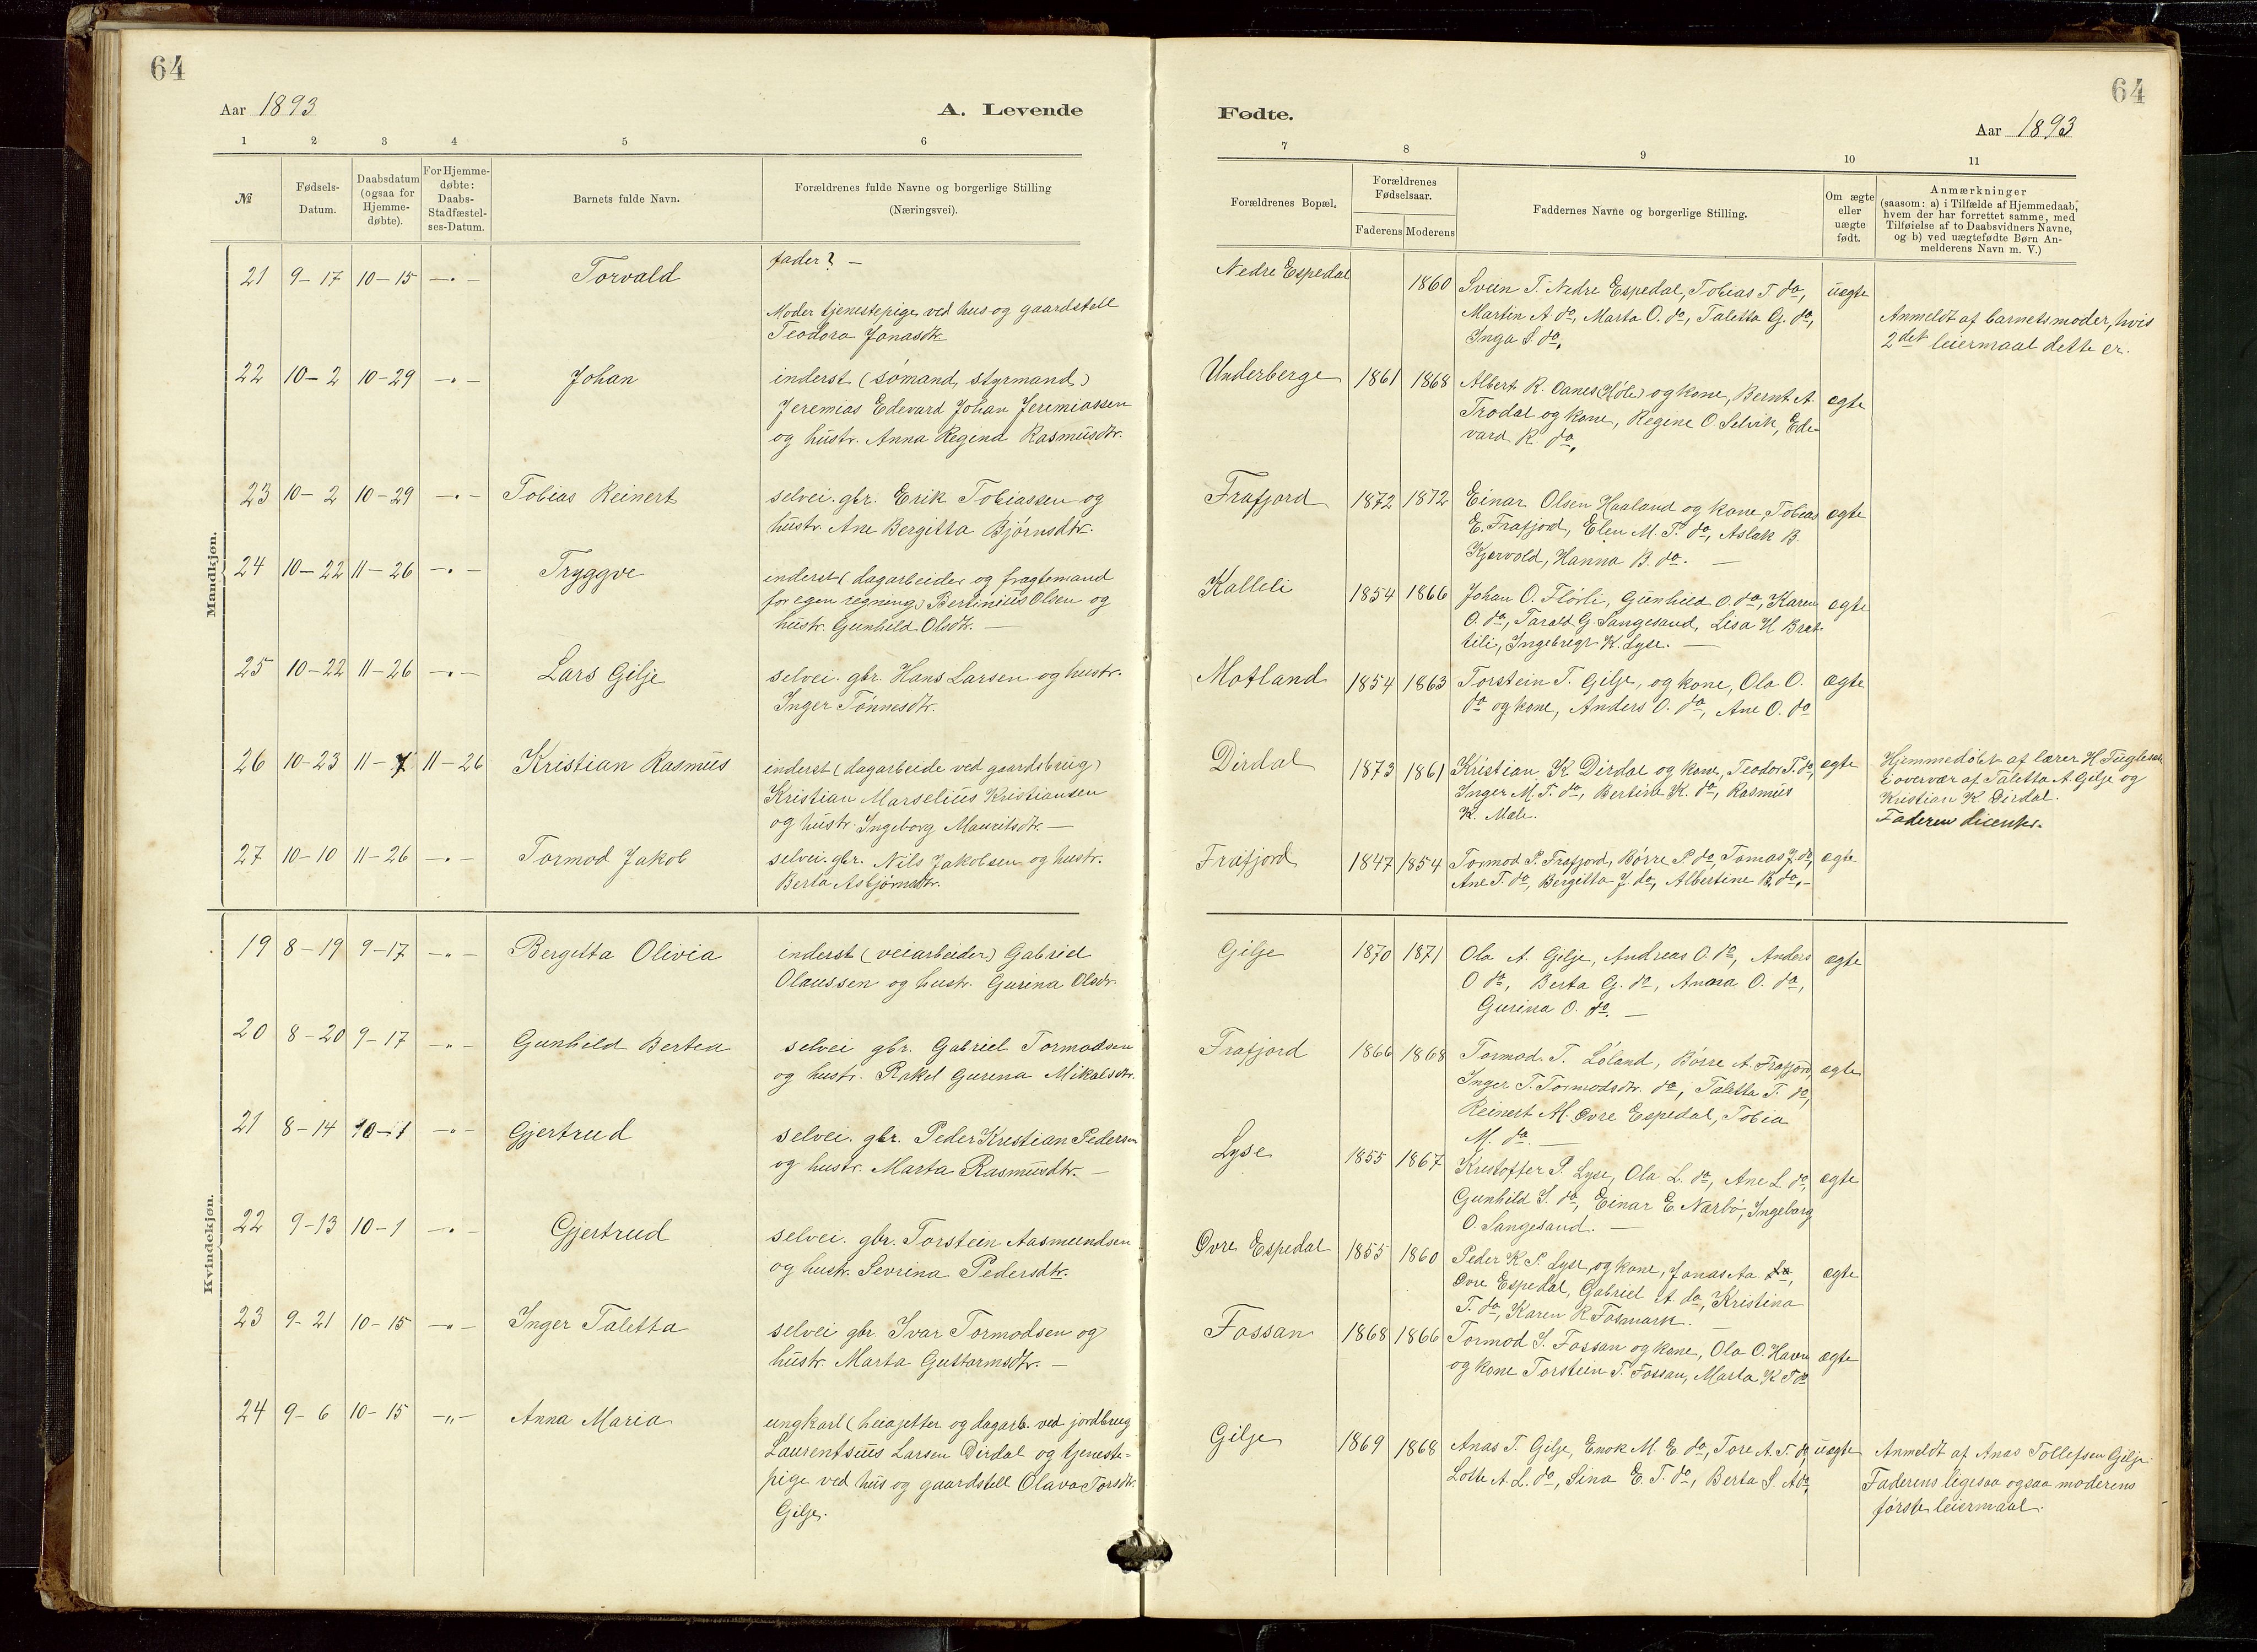 64
Aar 1893
A. Levende
1 2 3 4 5 6
№
Fødsels-
Datum.
Daabsdatum
(ogsaa for
Hjemme-
døbte).
For Hjemme-
døbte:
Daabs-
Stadfæstel-
ses-Datum.
Barnets fulde Navn.
Forældrenes fulde Navne og borgerlige Stilling
(Næringsvei).
Mandkjøn.
21 9-17 10-15 -"- Torvald
fader? -
Moder tjenestepige ved hus og gaardstell
Teodora Jonasdtr.
22 10-2 10-29 -"- Johan
inderst (sømand, styrmand)
Jeremias Edevard Johan Jeremiassen
og hustr. Anna Regina Rasmusdtr.
23 10-2 10-29 -"- Tobias Reinert
selvei. gbr. Erik Tobiassen og
hustr. Ane Bergitta Bjørnsdtr.
24 10-22 11-26 -"- Tryggve
inderst (dagarbeider og fragtemand
for egen regning) Bertinius Olsen og
hustr. Gunhild Olsdtr. -
25 10-22 11-26 -"- Lars Gilje
selvei. gbr. Hans Larsen og hustr.
Inger Tønnesdtr.
26 10-23 11-7 11-26 Kristian Rasmus
inderst (dagarbeide ved gaardsbrug)
Kristian Marselius Kristiansen
og hustr. Ingeborg Mauritsdtr. -
27 10-10 11-26 -"- Tormod Jakob
selvei. gbr. Nils Jakobsen og hustr.
Berta Asbjørnsdtr.
Kvindekjøn.
19 8-19 9-17 -"- Bergitta Olivia
inderst (veiarbeider) Gabriel
Olaussen og hustr. Gurina Olsdtr.
20 8-20 9-17 -"- Gunhild Bertea
selvei gbr. Gabriel Tormodsen
og hustr. Rakel Gurina Mikalsdtr.
21 8-14 10-1 -"- Gjertrud
selvei. gbr. Peder Kristian Pedersen
og hustr. Marta Rasmusdtr. -
22 9-13 10-1 -"- Gjertrud
selvei. gbr. Torstein Aasmundsen
og hustr. Sevrina Pedersdtr.
23 9-21 10-15 -"- Inger Taletta
selvei gbr. Ivar Tormodsen og
hustr. Marta Guttormsdtr. -
24 9-6 10-15 -"- Anna Maria
ungkarl (heiagjetter og dagarb. ved jordbrug
Laurentsius Larsen Dirdal og tjeneste-
pige ved hus og gaardstell Olava Torsdtr.
Gilje.
64
Fødte.
Aar 1893
7 8 9 10 11
Forældrenes Bopæl.
Forældrenes
Fødselsaar.
Faderens Moderens
Faddernes Navne og borgerlige Stilling.
Om ægte
eller
uægte
født.
Anmærkninger
(saasom: a) i Tilfælde af Hjemmedaab,
hvem der har forrettet samme, med
Tilføielse af to Daabsvidners Navne,
og b) ved uægtefødte Børn An-
melderens Navn m. V.)
Nedre Espedal 1860 Svein T. Nedre Espedal, Tobias T. do, uægte
Martin A do, Marta O. do, Taletta G. do,
Inga S do,
Anmeldt af barnets moder, hvis
2det leiermaal dette er.
Underberge 1861 1868 Albert R. Oanes (Høle) og kone, Bernt A. ægte
Trodal og kone, Regine O. Selvik, Ede-
vard K. do,
Frafjord 1872 1872 Einar Olsen Haaland og kone, Tobias ægte
E. Frafjord, Elen M. T. do, Aslak B.
Kjervold, Hanna B. do. -
Kalleli 1854 1866 Johan O. Flørli, Gunhild O. do, Karen ægte
O. do, Tarald G. Sangesand, Lisa H Brat-
teli, Ingebregt K. Lyse. -
Motland 1854 1863 Torstein T. Gilje, og kone, Ola O. ægte
do og kone, Anders O. do, Ane O. do
Dirdal 1873 1861 Kristian K Dirdal og kone, Teodor T. do, ægte
Inger M. T. do, Bertine K. do, Rasmus
K. Mele.
Hjemmedøbt af lærer H. Fuglesa
i overvær af Taletta A. Gilje og
Kristian K Dirdal.
Faderen dissenter.
Frafjord 1847 1854 Tormod P. Frafjord, Børre P. do, Tomas J. do, ægte
Ane T. do, Bergitta J. do, Albertine B. do, -
Gilje 1870 1871 Ola A. Gilje, Andreas O. do, Anders ægte
O do, Berta G. do, Anna O. do,
Gurina O. do. -
Frafjord 1866 1868 Tormod T. Løland, Børre A. Frafjord ægte
Inger T. Tormodsdtr. do, Taletta T. do,
Reinert M. Øvre Espedal, Tobia
M. do. -
Lyse 1855 1867 Kristoffer P. Lyse, Ola L. do, Ane L. do, ægte
Gunhild S. do, Einar E. Nærbø, Ingeborg
O. Sangesand. -
Øvre Espedal 1855 1860 Peder K P. Lyse og kone, Jonas Aa do, ægte
Øvre Espedal, Gabriel A. do, Kristina
T. do, Karen R Fosmark.
Fossan 1868 1866 Tormod S. Fossan og kone, Ola O. Havn ægte
og kone Torstein T. Fossan, Marta K T do
Gilje 1869 1868 Anas T. Gilje, Enok M. E. do, Tore A. T. do uægte
Lotte A. L. do, Sina E. T. do, Berta S. A do,
Anmeldt af Anas Tollefsen Gilje.
Faderens ligesaa ogsaa moderens
første leiermaal.